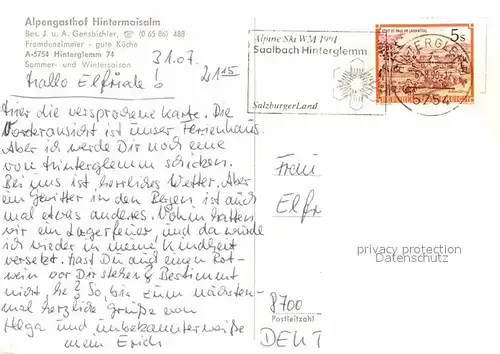 Alpengasthof Hintermaisalm
Bes. J. u. A. Gensbichler, ☎ (0 65 86) 488
Fremdenzimmer - gute Küche
A-5754 Hinterglemm 74
Sommer- und Wintersaison
31.07.
21 15
Hallo Elfriede!
Hier die versprochene Karte. Die
Vorderansicht ist unser Ferienhaus.
Aber ich werde Dir noch eine
von Hinterglemm schicken.
Bei uns ist herrliches Wetter. Aber
ein Gewitter in den Bergen ist auch
mal etwas anderes. Vohin hatten
wir ein Lagerfeuer, und da würde
ich wieder in meine Kindheit
versetzt. Hast Du auch einen Rot-
wein vor Dir stehen? Bestimmt
nicht, he? So, bis zum nächsten-
mal herzliche Grüße von
Helga und unbekannterweiße
mein Erich
Alpine Ski WM 1991
Saalbach Hinterglemm
SalzburgerLand
5s
HINTERGLEMM
5754
Frau
Elfr
privacy protection
Datenschutz
8700
Postleitzahl
DEUT